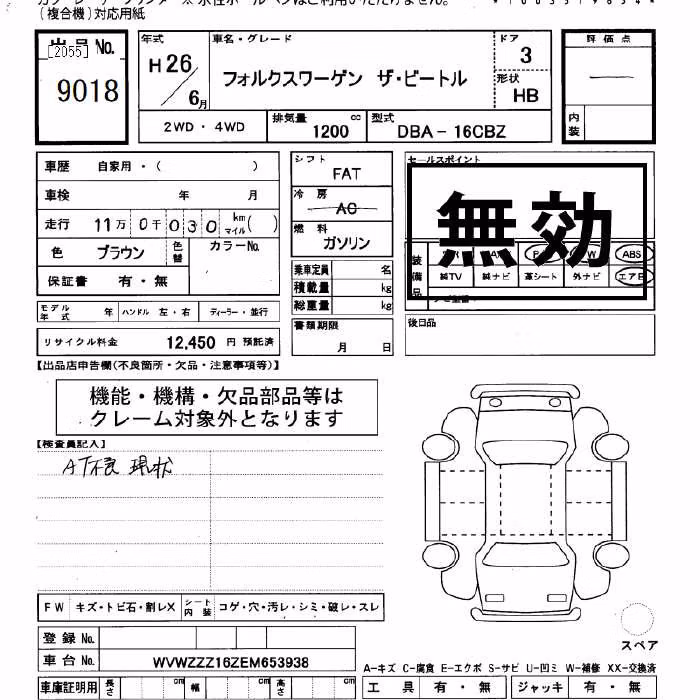 (複合機)対応用紙
出品 No.
[2055]
9018
年式
H 26 / 6月
車名・グレード
フォルクスワーゲン ザ・ビートル
ドア
3
形状
HB
2WD・4WD
排気量
1200 cc
型式
DBA-16CBZ
評価点
内装
車歴 自家用・( )
車検 年 月
走行 11万 0千 030 km マイル( )
色 ブラウン 色替 カラーNo.
保証書 有・無
モデル年式 年 ハンドル 左・右 ディーラー・並行
リサイクル料金 12,450 円 預託済
シフト
FAT
冷房
AC
燃料
ガソリン
乗車定員 名
積載量 kg
総重量 kg
書類期限
月 日
セールスポイント
無効
装備品
ABS
純TV 純ナビ 革シート 外ナビ エアB
後日品
【出品店申告欄(不良箇所・欠品・注意事項等)】
機能・機構・欠品部品等は
クレーム対象外となります
【検査員記入】
AT不良 現状
FW キズ・トビ石・割レX シート内装 コゲ・穴・汚レ・シミ・破レ・スレ
登録 No.
車台 No. WVWZZZ16ZEM653938
車庫証明用 長さ cm 幅 cm 高さ cm
スペア
A-キズ C-腐食 E-エクボ S-サビ U-凹ミ W-補修 XX-交換済
工具 有・無 ジャッキ 有・無